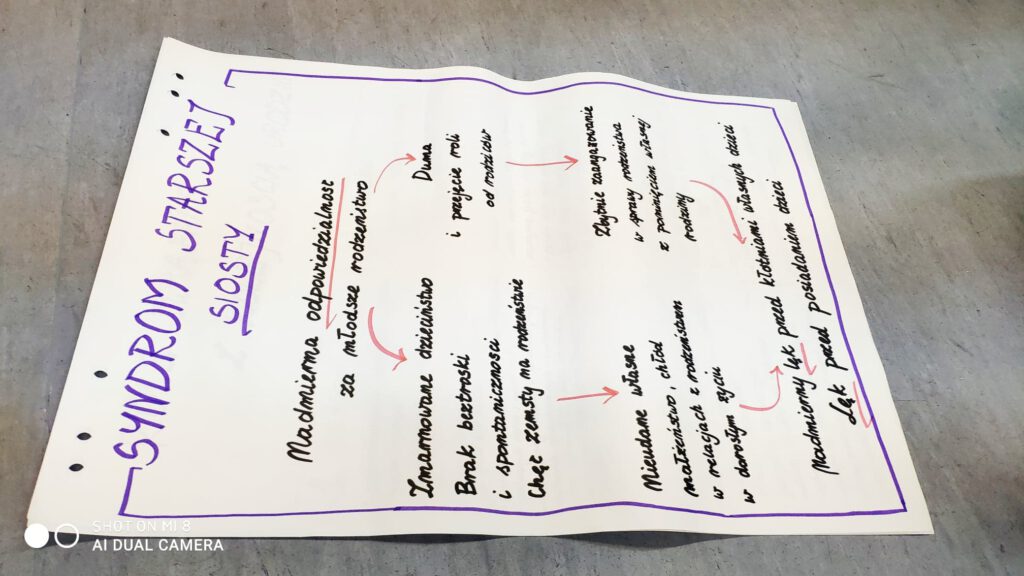 SYNDROM STARSZEJ
SIOSTY
Nadmierna odpowiedzialność
za młodsze rodzeństwo
Zmarnowane dzieciństwo
Brak beztroski
i spontaniczności
Chęć zemsty na rodzeństwie
Duma
i przejęcie roli
od rodziców
Nieudane własne
małżeństwo, chłód
w relacjach z rodzeństwem
w dorosłym życiu
Zbytnie zaangażowanie
w sprawy rodzeństwa
z pominięciem własnej
rodziny
Nadmierny lęk przed kłótniami własnych dzieci
Lęk przed posiadaniem dzieci
SHOT ON MI 8
AI DUAL CAMERA